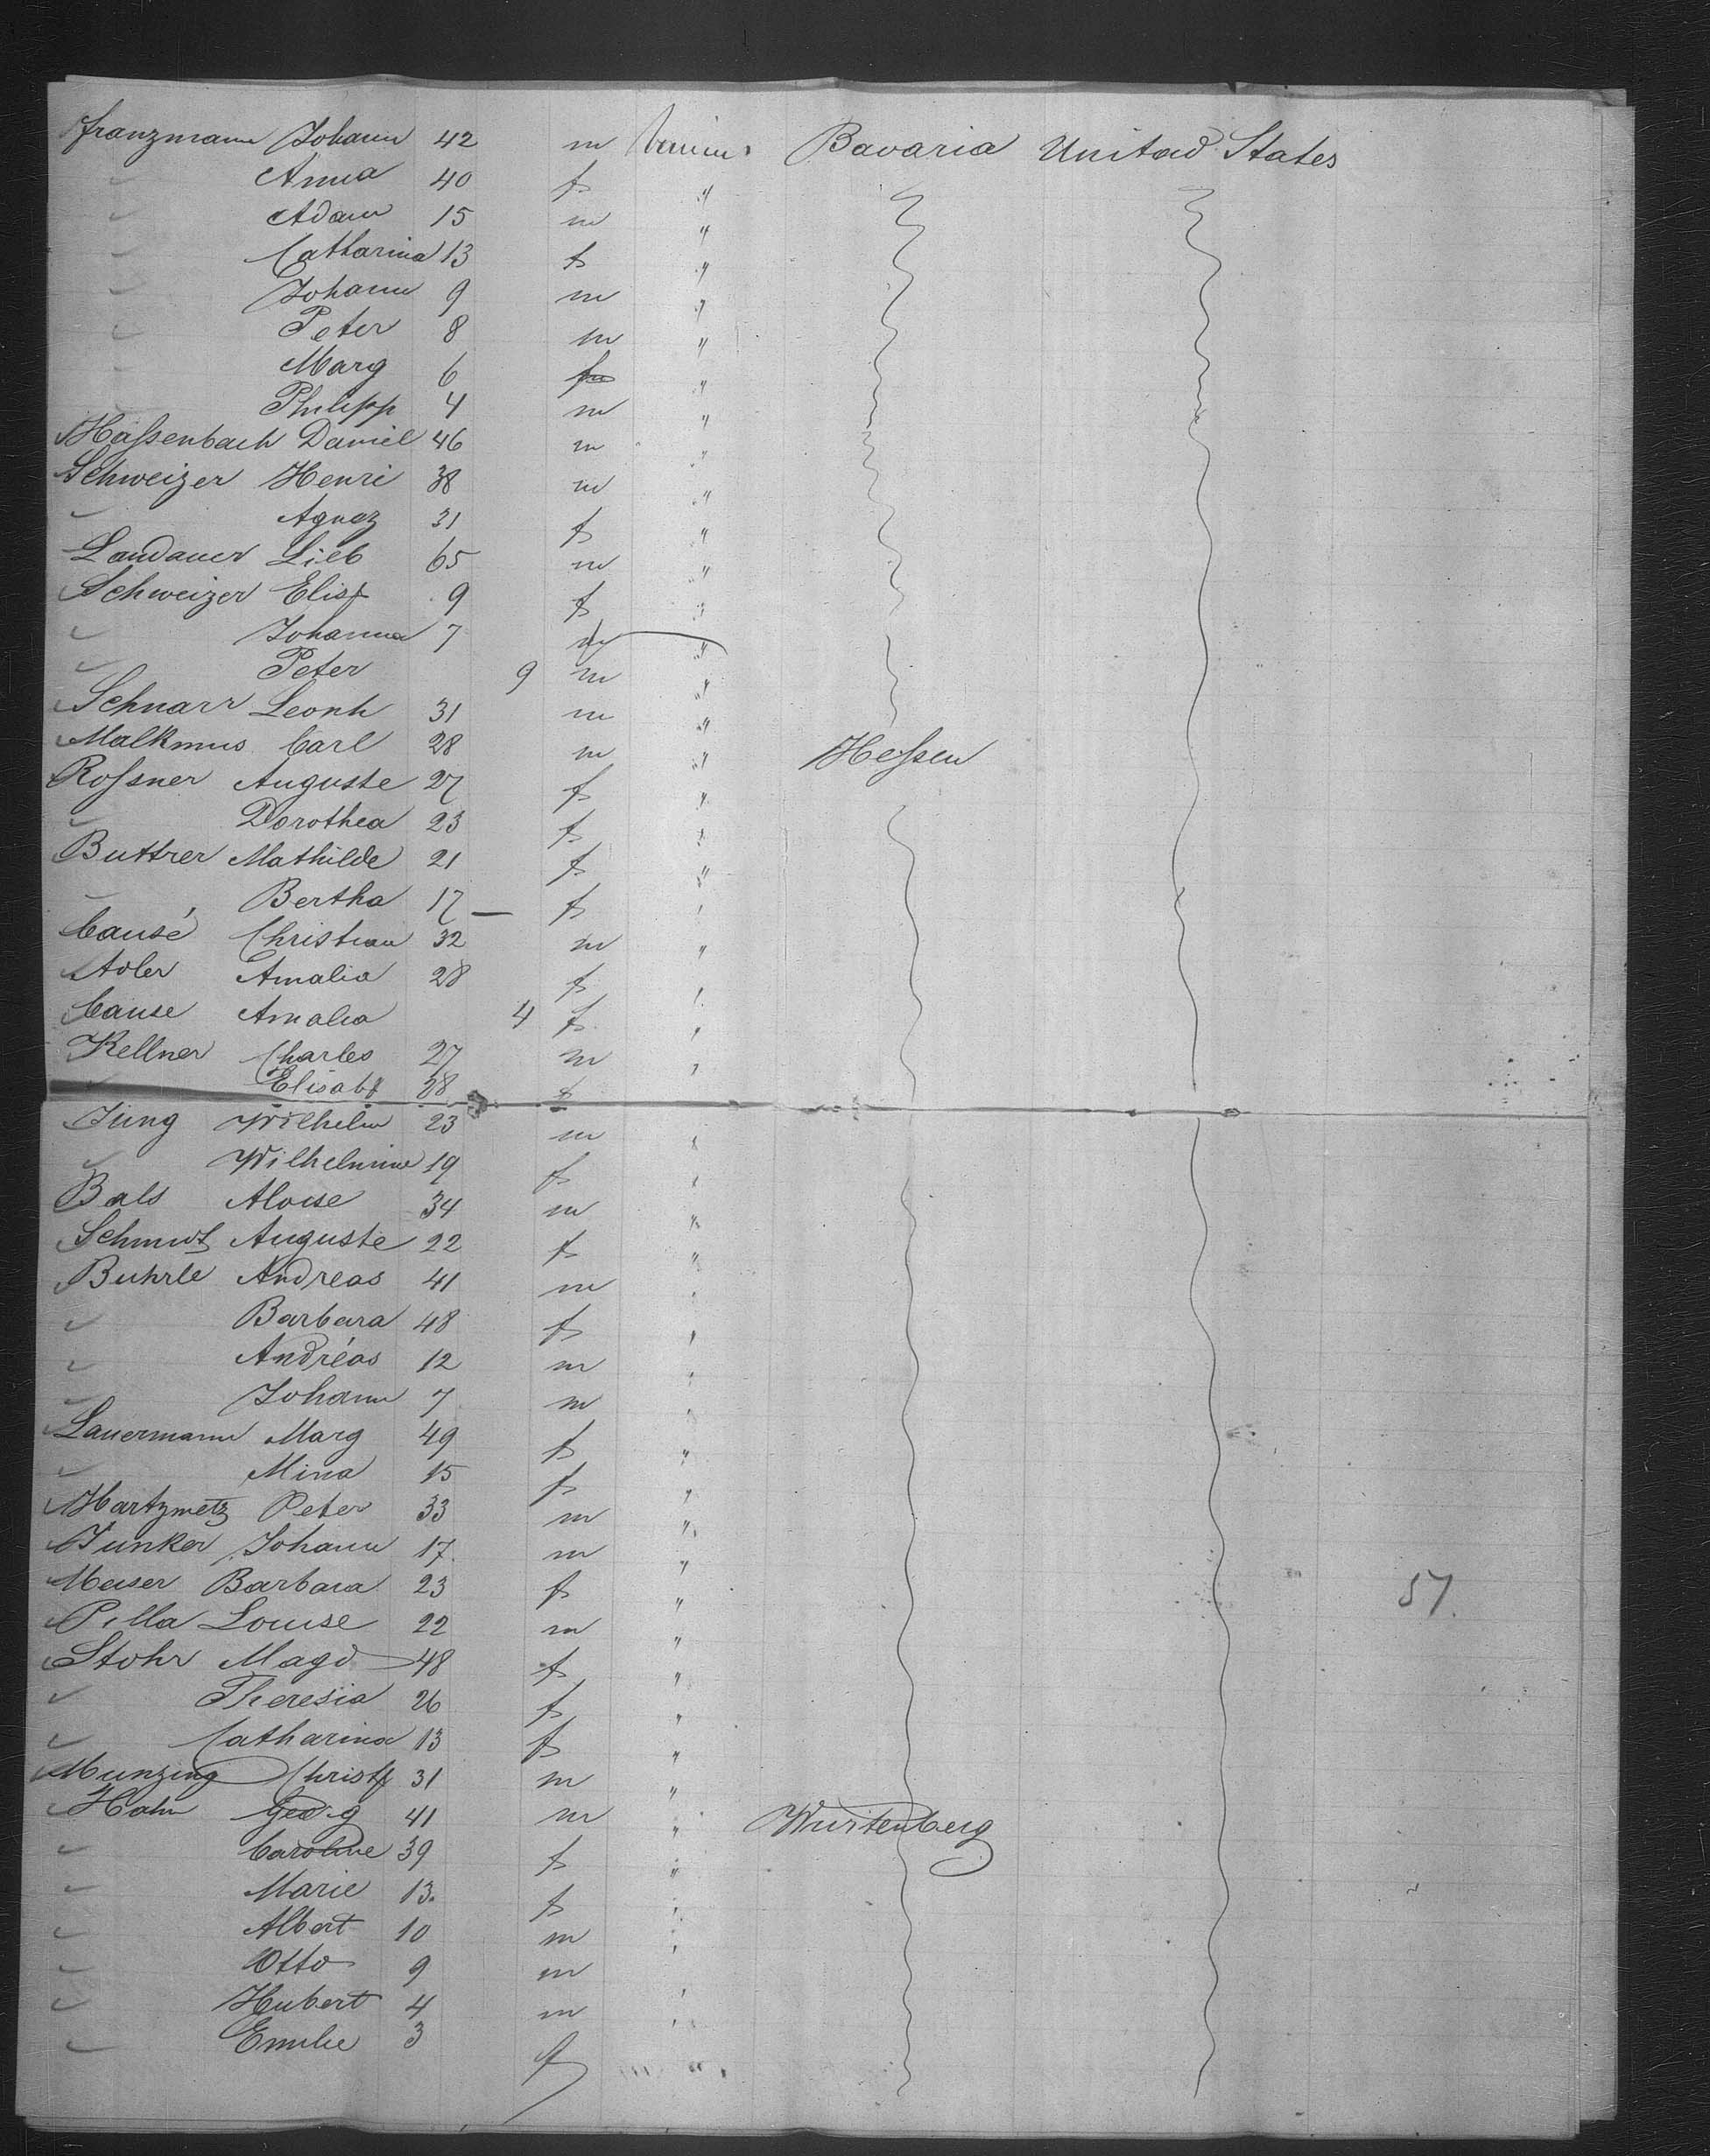 Franzmann Johann 42 m Bavaria United States
" Anna 40 f "
" Adam 15 m "
" Catharina 13 f "
" Johann 9 m "
" Peter 8 m "
" Marg 6 f "
" Philipp 4 m "
Hassenbach Daniel 46 m "
Schweizer Henri 38 m "
" Agnez 31 f "
Landauer Lieb 65 m "
Schweizer Elisf 9 f "
" Johanna 7 "
" Peter 9 m "
Schnarr Leonh 31 m "
Malkmus Carl 28 m " Hessen
Rossner Auguste 27 f "
" Dorothea 23 f "
Buttrer Mathilde 21 f "
" Bertha 17 — f "
Causé Christian 32 m "
Adler Amalia 28 f "
Cause Amalia 4 f "
Kellner Charles 27 m "
" Elisabf 28 f
Jung Wilhelm 23 m "
" Wilhelmine 19 f "
Bals Aloise 34 m "
Schmidt Auguste 22 f "
Buhrle Andreas 41 m "
" Barbara 48 f "
" Andréas 12 m "
" Johann 7 m "
Lauermann Marg 49 f "
" Mina 15 f "
Hartzmetz Peter 33 m "
Junker Johann 17. m "
Meiser Barbara 23 f " 57.
Pilla Louise 22 m "
Stohr Magd 48 f "
" Theresia 26 f "
" Catharina 13 f "
Munzing Christf 31 m "
Hahn Georg 41 m " Wurtenberg
" Caroline 39 f "
" Marie 13. f "
" Albert 10 m "
" Otto 9 m
" Hubert 4 m "
" Emilie 3 f "